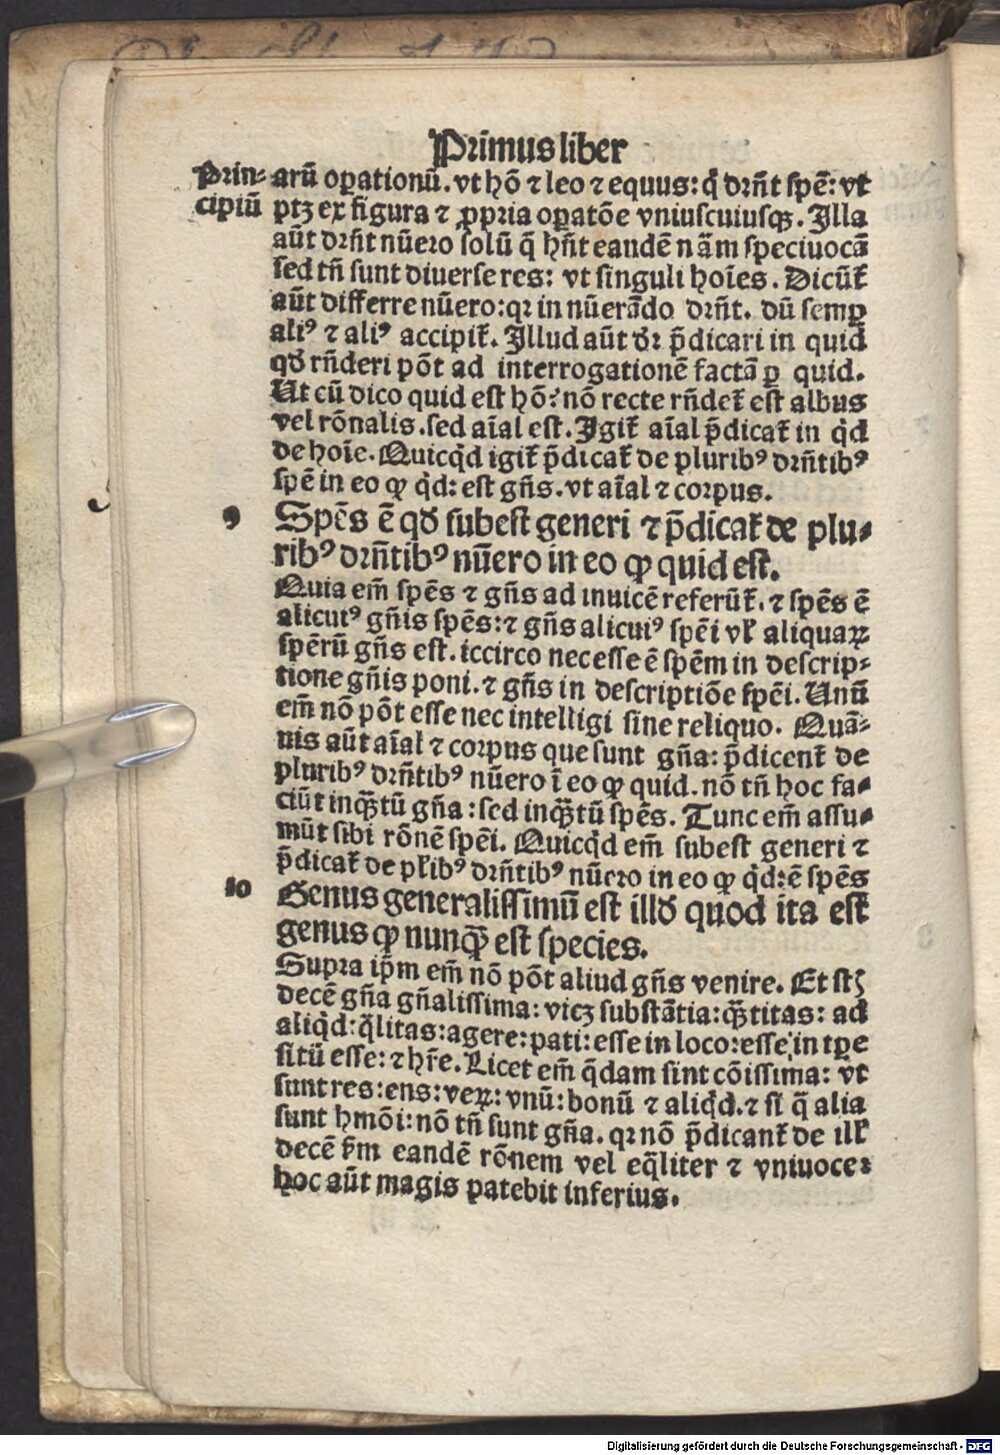 Primus liber
Prin-
cipiū
arū oꝑationū. vt hō ⁊ leo ⁊ equus: q̄ drn̄t spē: vt
ptꝫ ex figura ⁊ ꝓpria oꝑatōe vniuscuiusqꝫ. Illa
aūt drn̄t nūero solū q̄ hn̄t eandē nām speciuocā
sed tn̄ sunt diuerse res: vt singuli hoīes. Dicūt᷑
aūt differre nūero: qꝛ in nūerādo drn̄t. dū semꝑ
aliꝰ ⁊ aliꝰ accipit᷑. Illud aūt dꝛ p̄dicari in quid
qd̄ rn̄deri pōt ad interrogationē factā ꝑ quid.
Ut cū dico quid est hō? nō recte rn̄det᷑ est albus
vel rōnalis. sed aīal est. Igit᷑ aīal p̄dicat᷑ in qͥd
de hoīe. Quicqͥd igit᷑ p̄dicat᷑ de pluribꝰ drn̄tibꝰ
spē in eo ꝙ qͥd: est gn̄s. vt aīal ⁊ corpus.
9 Spēs ē qd̄ subest generi ⁊ p̄dicat᷑ de plu-
ribꝰ drn̄tibꝰ nūero in eo ꝙ quid est.
Quia em̄ spēs ⁊ gn̄s ad inuicē referūt᷑. ⁊ spēs ē
alicuiꝰ gn̄is spēs: ⁊ gn̄s alicuiꝰ spēi vl̓ aliquaꝝ
spērū gn̄s est. iccirco necesse ē spēm in descrip-
tione gn̄is poni. ⁊ gn̄s in descriptiōe spēi. Unū
em̄ nō pōt esse nec intelligi sine reliquo. Quā-
uis aūt aīal ⁊ corpus que sunt gn̄a: p̄dicent᷑ de
pluribꝰ drn̄tibꝰ nūero ī eo ꝙ quid. nō tn̄ hoc fa-
ciūt inqꝫtū gn̄a: sed inqꝫtū spēs. Tunc em̄ assu-
mūt sibi rōnē spēi. Quicqͥd em̄ subest generi ⁊
p̄dicat᷑ de pl̓ibꝰ drn̄tibꝰ nūero in eo ꝙ qͥd: ē spēs
10 Genus generalissimū est illd̄ quod ita est
genus ꝙ nunqꝫ est species.
Supra ip̄m em̄ nō pōt aliud gn̄s venire. Et st̄
decē gn̄a gn̄alissima: vicꝫ substātia: qꝫtitas: ad
aliqͥd: q̄litas: agere: pati: esse in loco: esse in tꝑe
sitū esse: ⁊ hr̄e. Licet em̄ q̄dam sint cōissima: vt
sunt res: ens: veꝝ: vnū: bonū ⁊ aliqͥd. ⁊ si q̄ alia
sunt hmōi: nō tn̄ sunt gn̄a. qꝛ nō p̄dicant᷑ de ill̓
decē s̄m eandē rōnem vel eq̄liter ⁊ vniuoce:
hoc aūt magis patebit inferius.
Digitalisierung gefördert durch die Deutsche Forschungsgemeinschaft - DFG